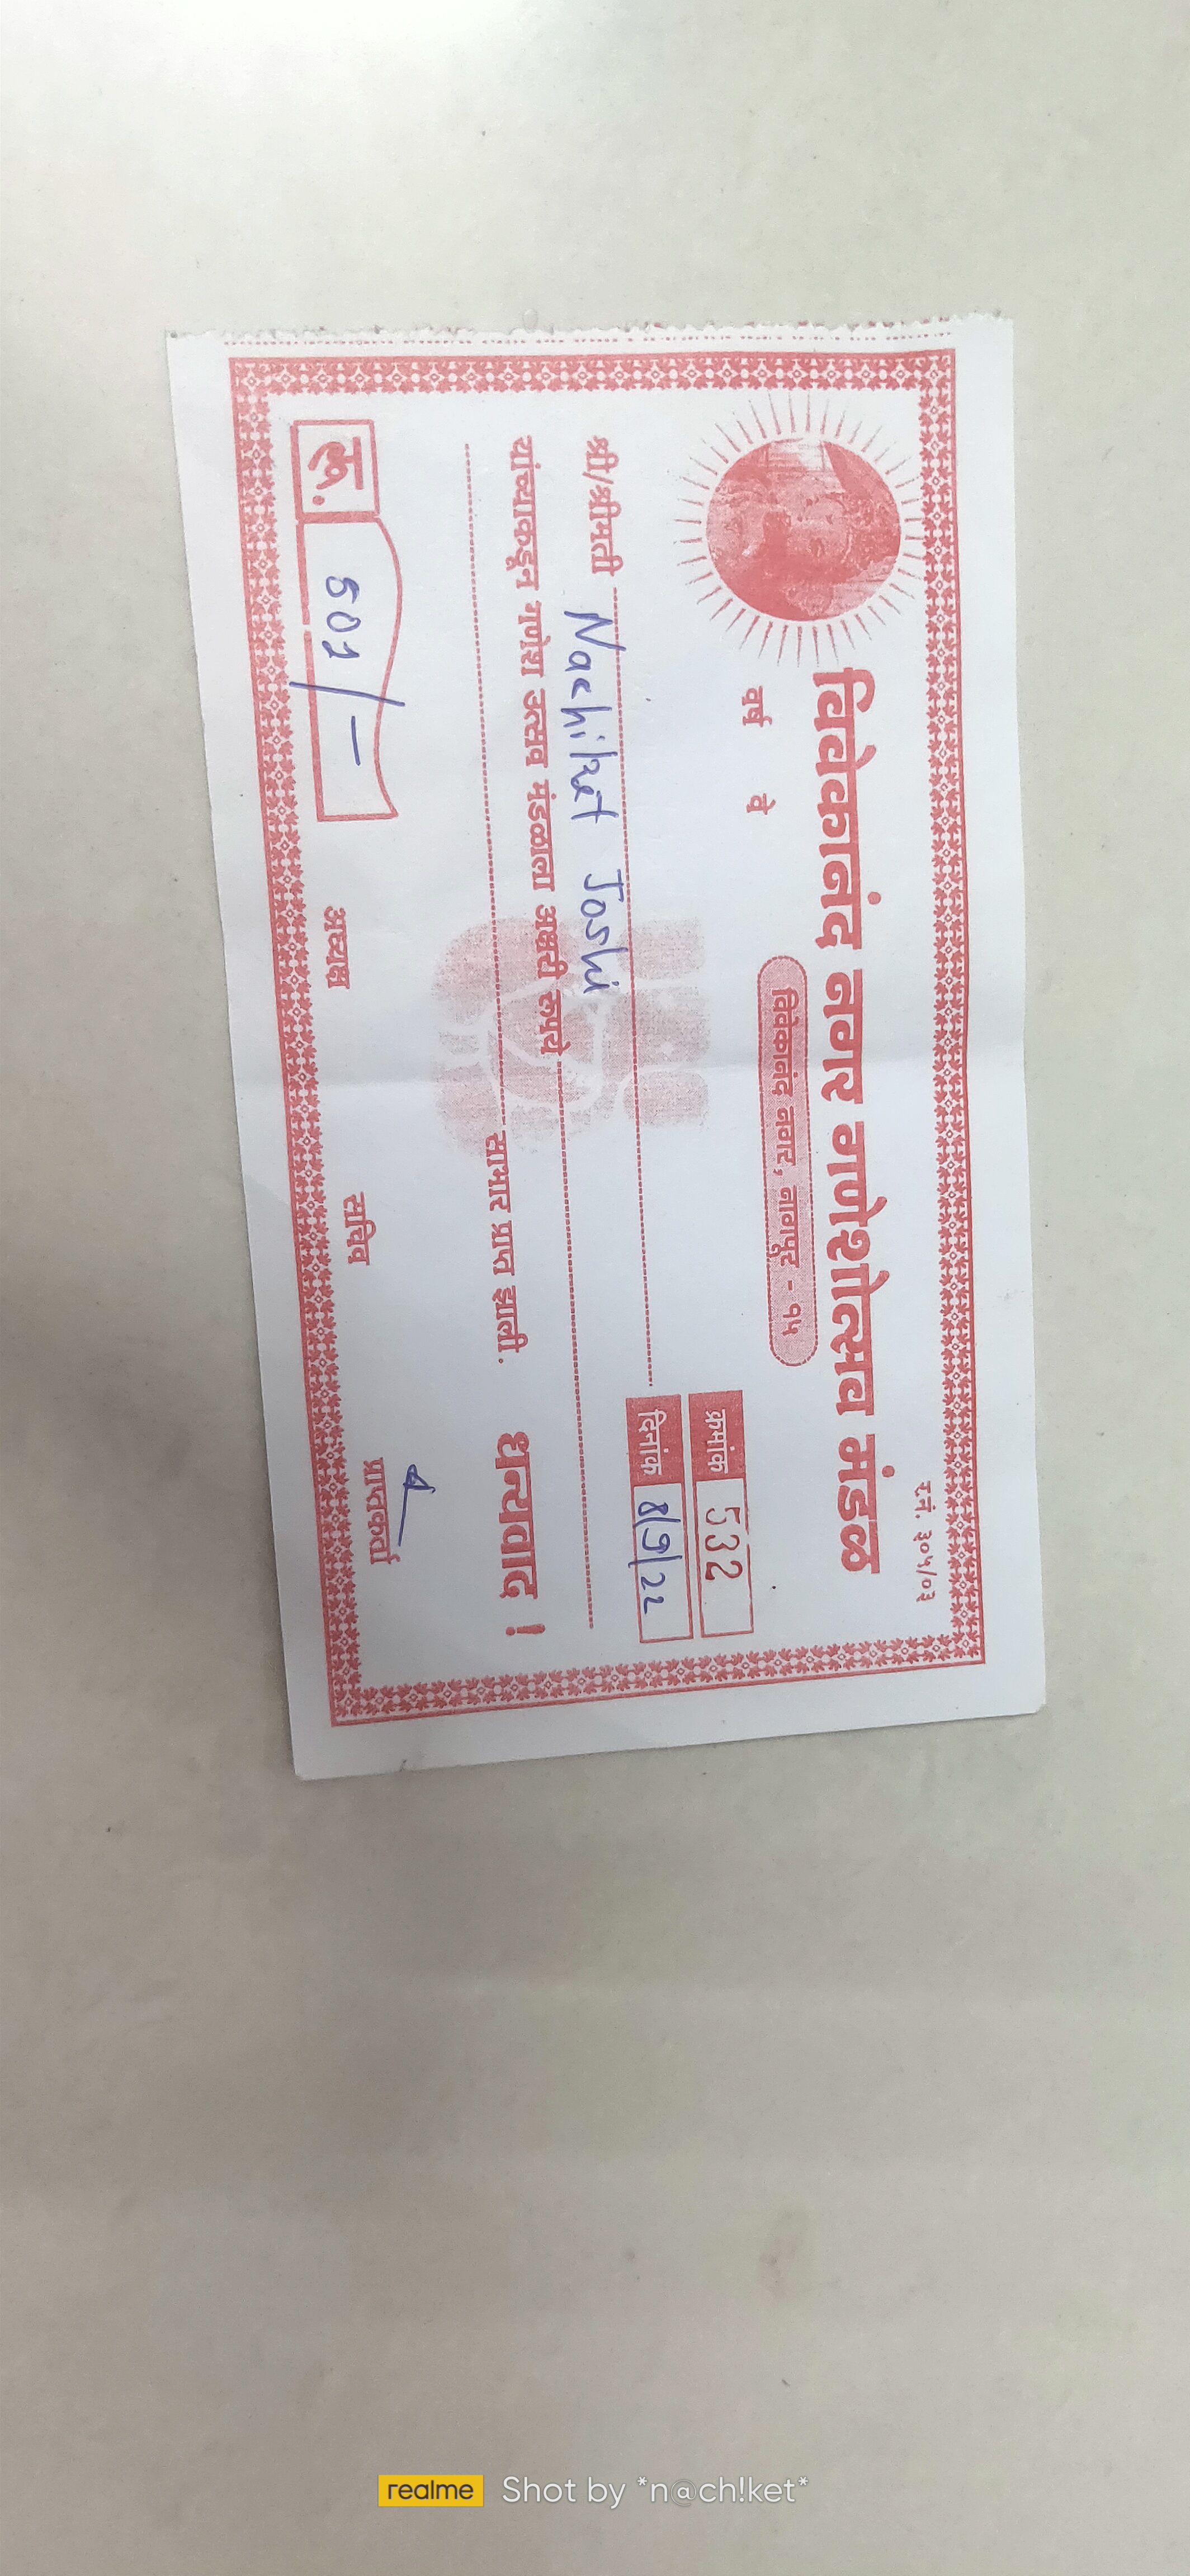 र.नं. ३०५/०३
विवेकानंद नगर गणेशोत्सव मंडळ
विवेकानंद नगर, नागपूर - १५
वर्ष वे
क्रमांक 532
दिनांक 8/9/22
श्री/श्रीमती Nachiket Joshi
यांच्याकडून गणेश उत्सव मंडळाला अक्षरी रुपये
साभार प्राप्त झाली. धन्यवाद !
रु. 501/-
अध्यक्ष सचिव प्राप्तकर्ता
realme Shot by *n@ch!ket*